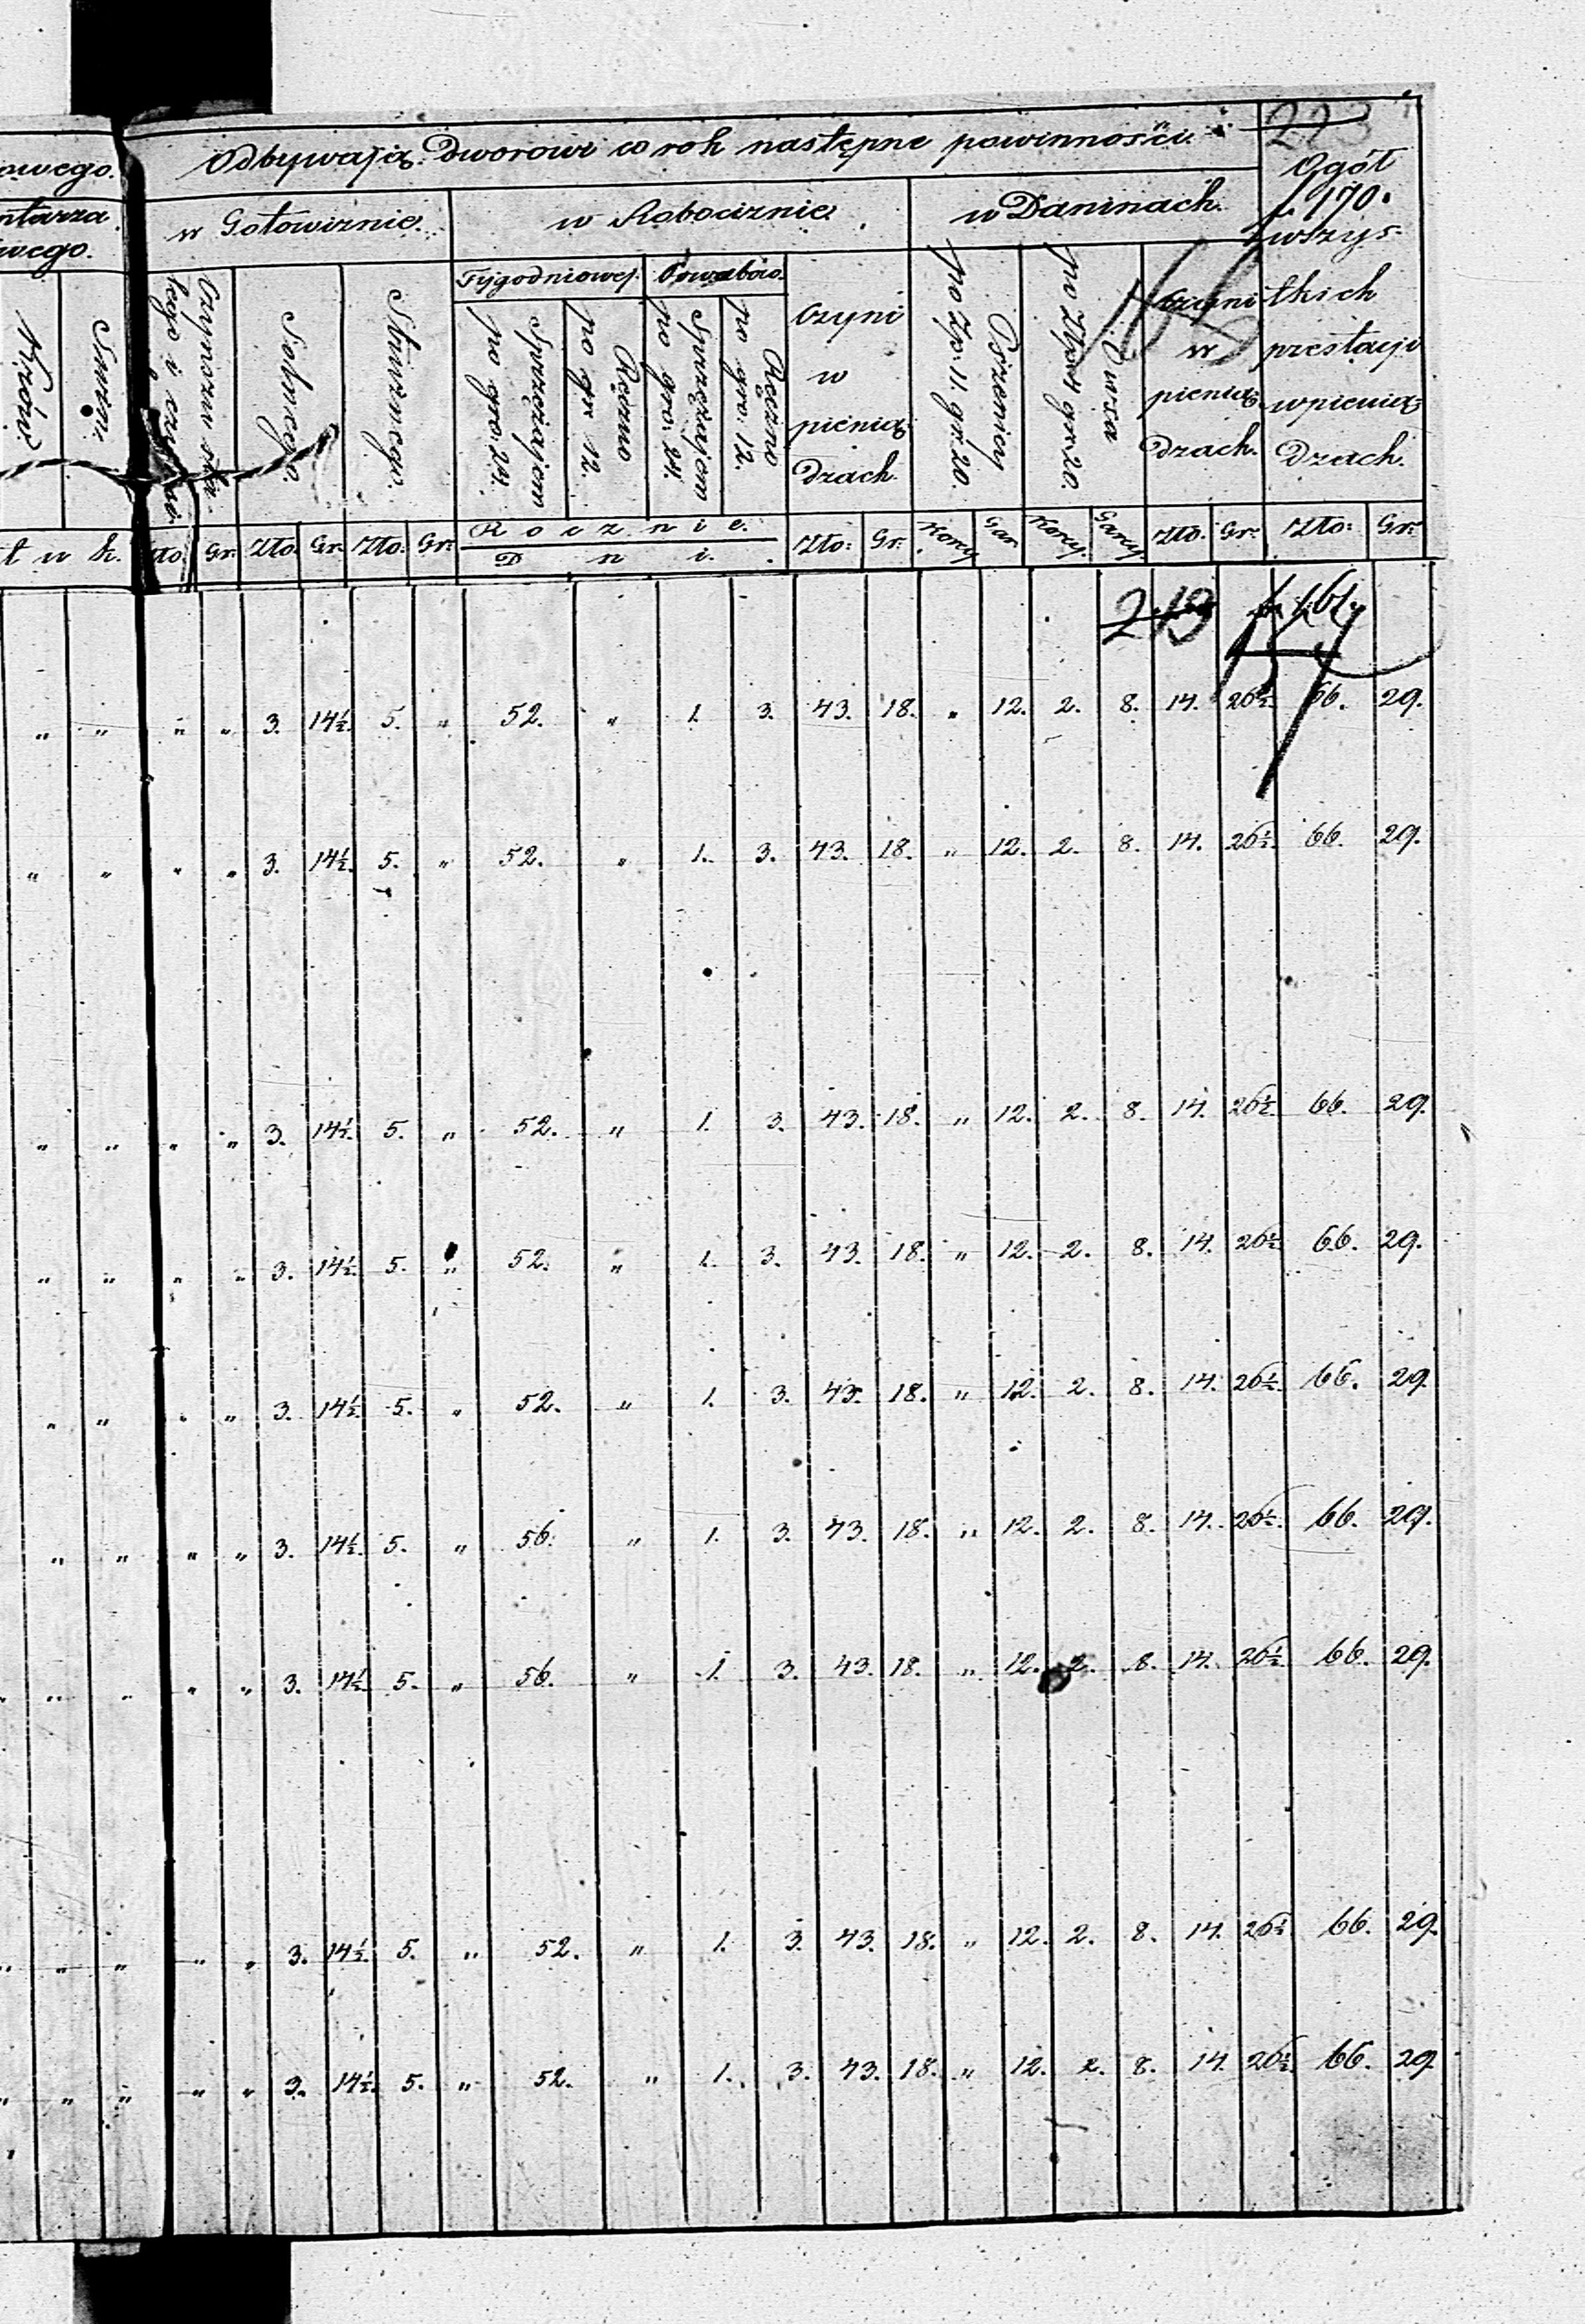 223
Odbywają Dworowi co rok następne powinności.
owego.
ntarza
wego.
w Gotowiznie.
w Robociznie
w Daninach.
Ogół
170.
wszys-
tkich
prestacji
w pienią-
dzach.
Krów
Swini.
Czynszu sta-
łego i
Solnego.
Stróżnego.
Tygodniowej.
Powabów.
Sprzężajem
po gro: 24.
Ręczno
po gr 12.
Sprzężajem
po gro: 24.
Ręczno
po gro: 12.
Czyni
w
pienią-
dzach.
Pszenicy
po Zp: 11. gr. 20.
Owsa
po Złp 4 gr 20.
Czyni
w
pienią-
dzach.
t u k. Zło. Gr. Zło. Gr. Zło. Gr. Rocznie. Zło: Gr. Korcy Gar. Korcy. Garcy. Zło. Gr. Zło: Gr:
D n i.
213
" " " " 3. 14½. 5. " 52. " 1. 3. 43. 18. " 12. 2. 8. 14. 26½. 66. 29.
" " " " 3. 14½. 5. " 52. " 1. 3. 43. 18. " 12. 2. 8. 14. 26½. 66. 29.
" " " " 3. 14½. 5. " 52. " 1. 3. 43. 18. " 12. 2. 8. 14. 26½. 66. 29.
" " " " 3. 14½. 5. " 52. " 1. 3. 43. 18. " 12. 2. 8. 14. 26½. 66. 29.
" " " " 3. 14½. 5. " 52. " 1. 3. 43. 18. " 12. 2. 8. 14. 26½. 66. 29.
" " " " 3. 14½. 5. " 56. " 1. 3. 43. 18. " 12. 2. 8. 14. 26½. 66. 29.
" " " " " 3. 14½. 5. " 56. " 1. 3. 43. 18. " 12. 2. 8. 14. 26½. 66. 29.
" " " " " 3. 14½. 5. " 52. " 1. 3. 43. 18. " 12. 2. 8. 14. 26½. 66. 29.
" " " " " 3. 14½. 5. " 52. " 1. 3. 43. 18. " 12. 2. 8. 14. 26½. 66. 29.